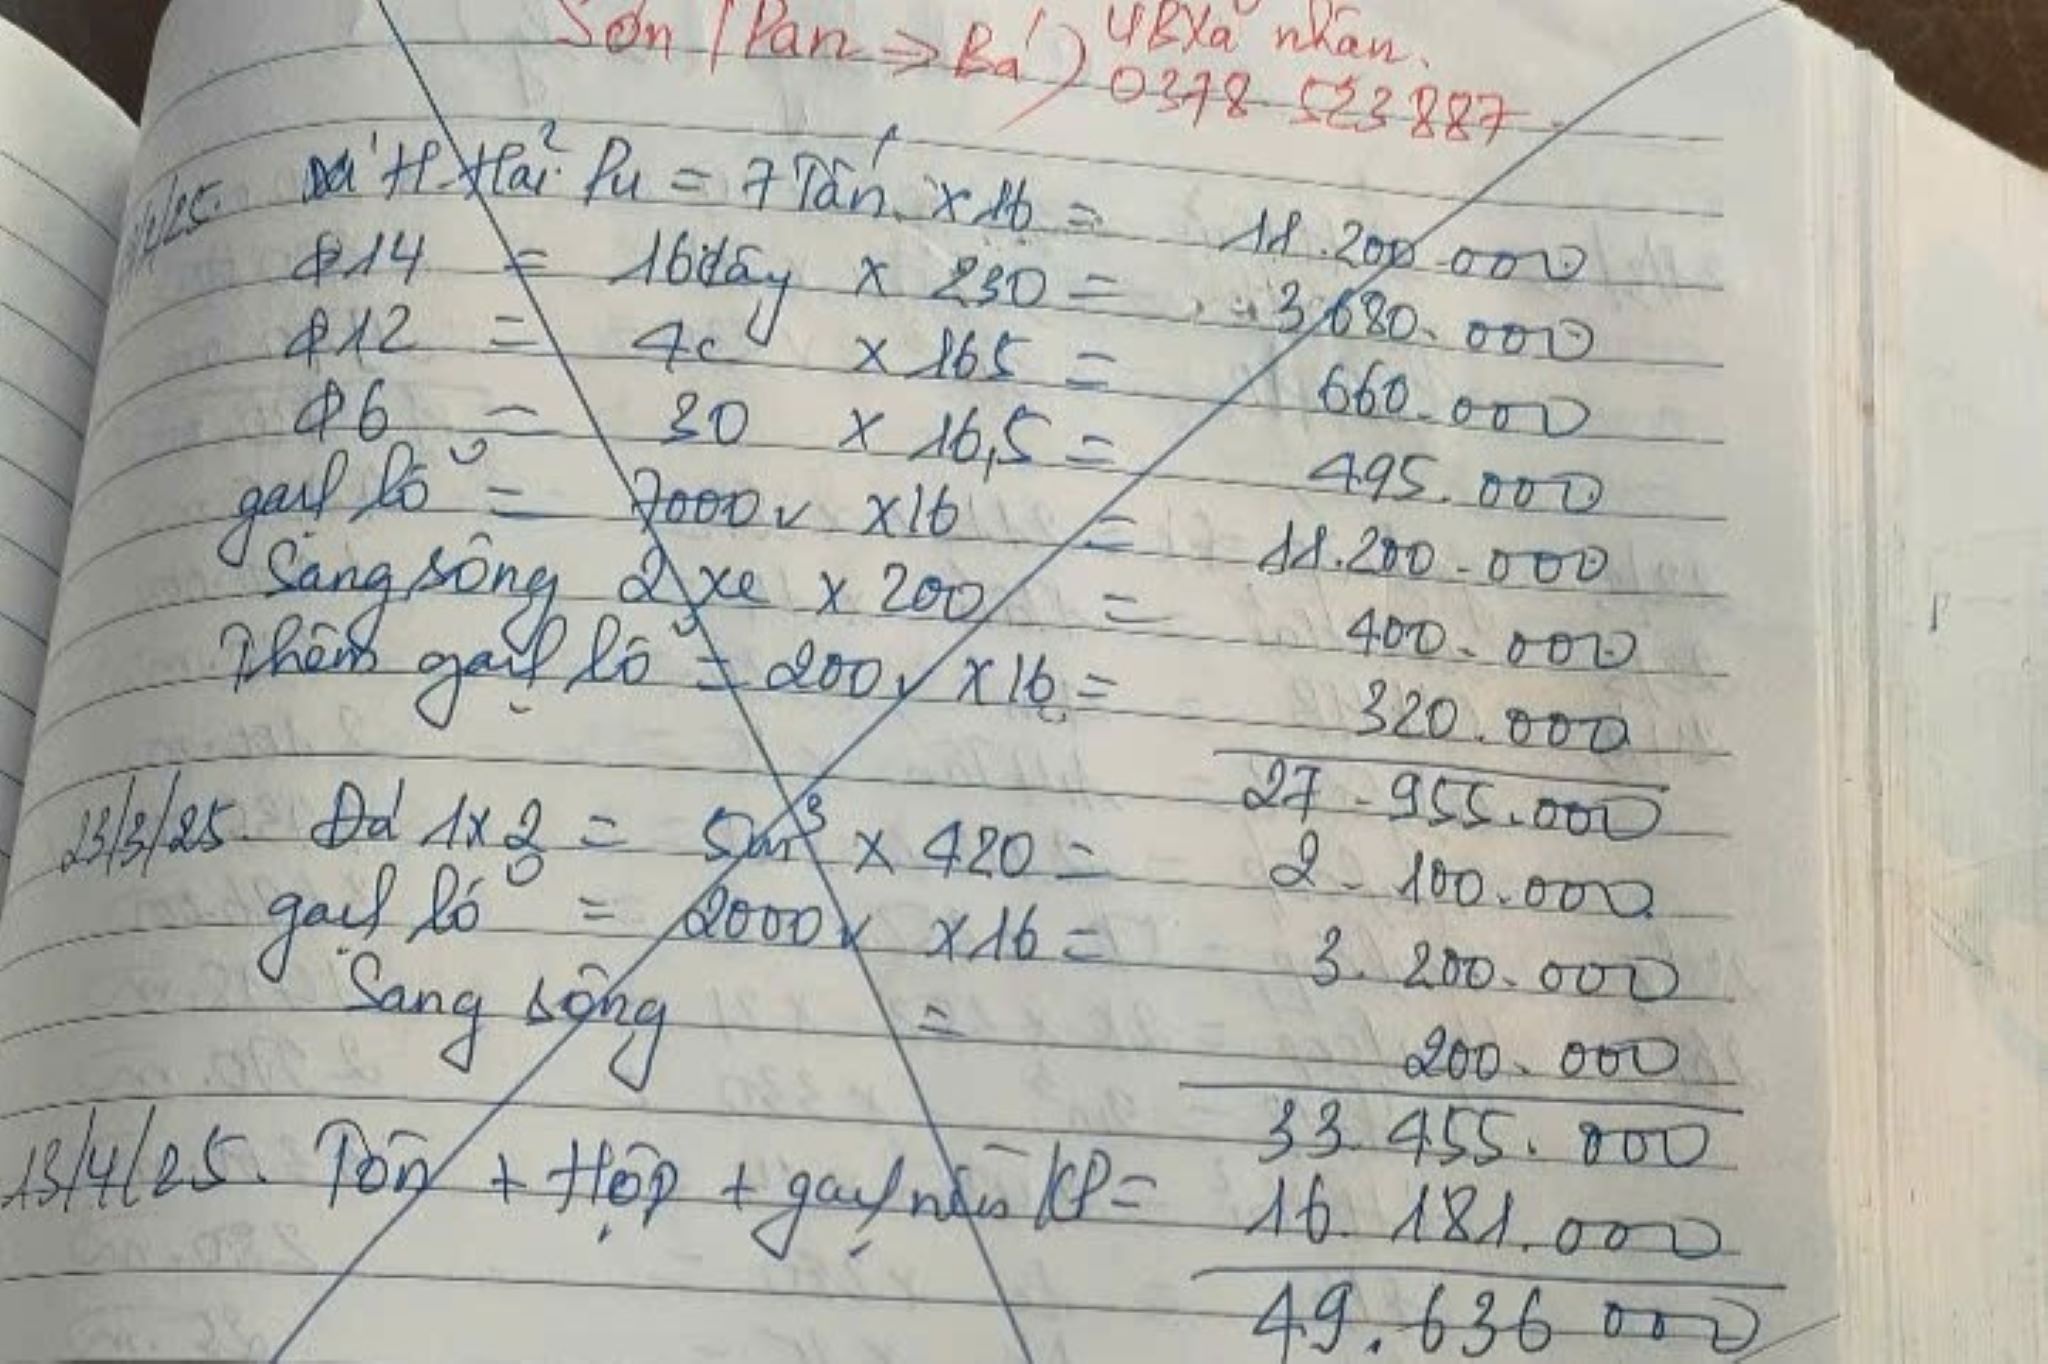 Sơn (Pán => Bá) UBXã nhãn.
0378 523 887
/25. Xá H. Hải Pu = 7 Tấn x 16 = 11.200.000
φ14 = 16 dây x 230 = 3.680.000
φ12 = 4c x 165 = 660.000
φ6 = 30 x 16,5 = 495.000
gạch lỗ = 7000v x 16 = 11.200.000
Sang sông 2 xe x 200 = 400.000
Thêm gạch lỗ = 200v x 16 = 320.000
27.955.000
23/3/25. Đá 1x2 = 5m³ x 420 = 2.100.000
gạch lỗ = 2000v x 16 = 3.200.000
Sang sông = 200.000
33.455.000
13/4/25. Tôn + Hộp + gạch nền KP = 16.181.000
49.636.000